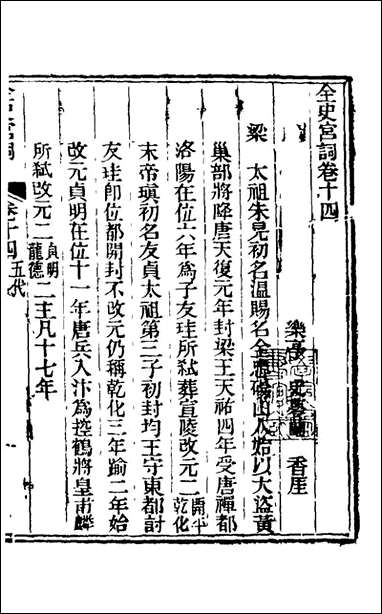 全史宮詞卷十四
樂亭 史夢蘭 香厓
梁 太祖朱晃初名溫賜名全忠碭山人始以大盜黃
巢部將降唐天復元年封梁王天祐四年受唐禪都
洛陽在位六年為子友珪所弒葬宣陵改元二開平乾化
末帝瑱初名友貞太祖第三子初封均王守東都討
友珪卽位都開封不改元仍稱乾化三年踰二年始
改元貞明在位十一年唐兵入汴為控鶴將皇甫麟
所弒改元二貞明龍德二主凡十七年
卷十四 五代